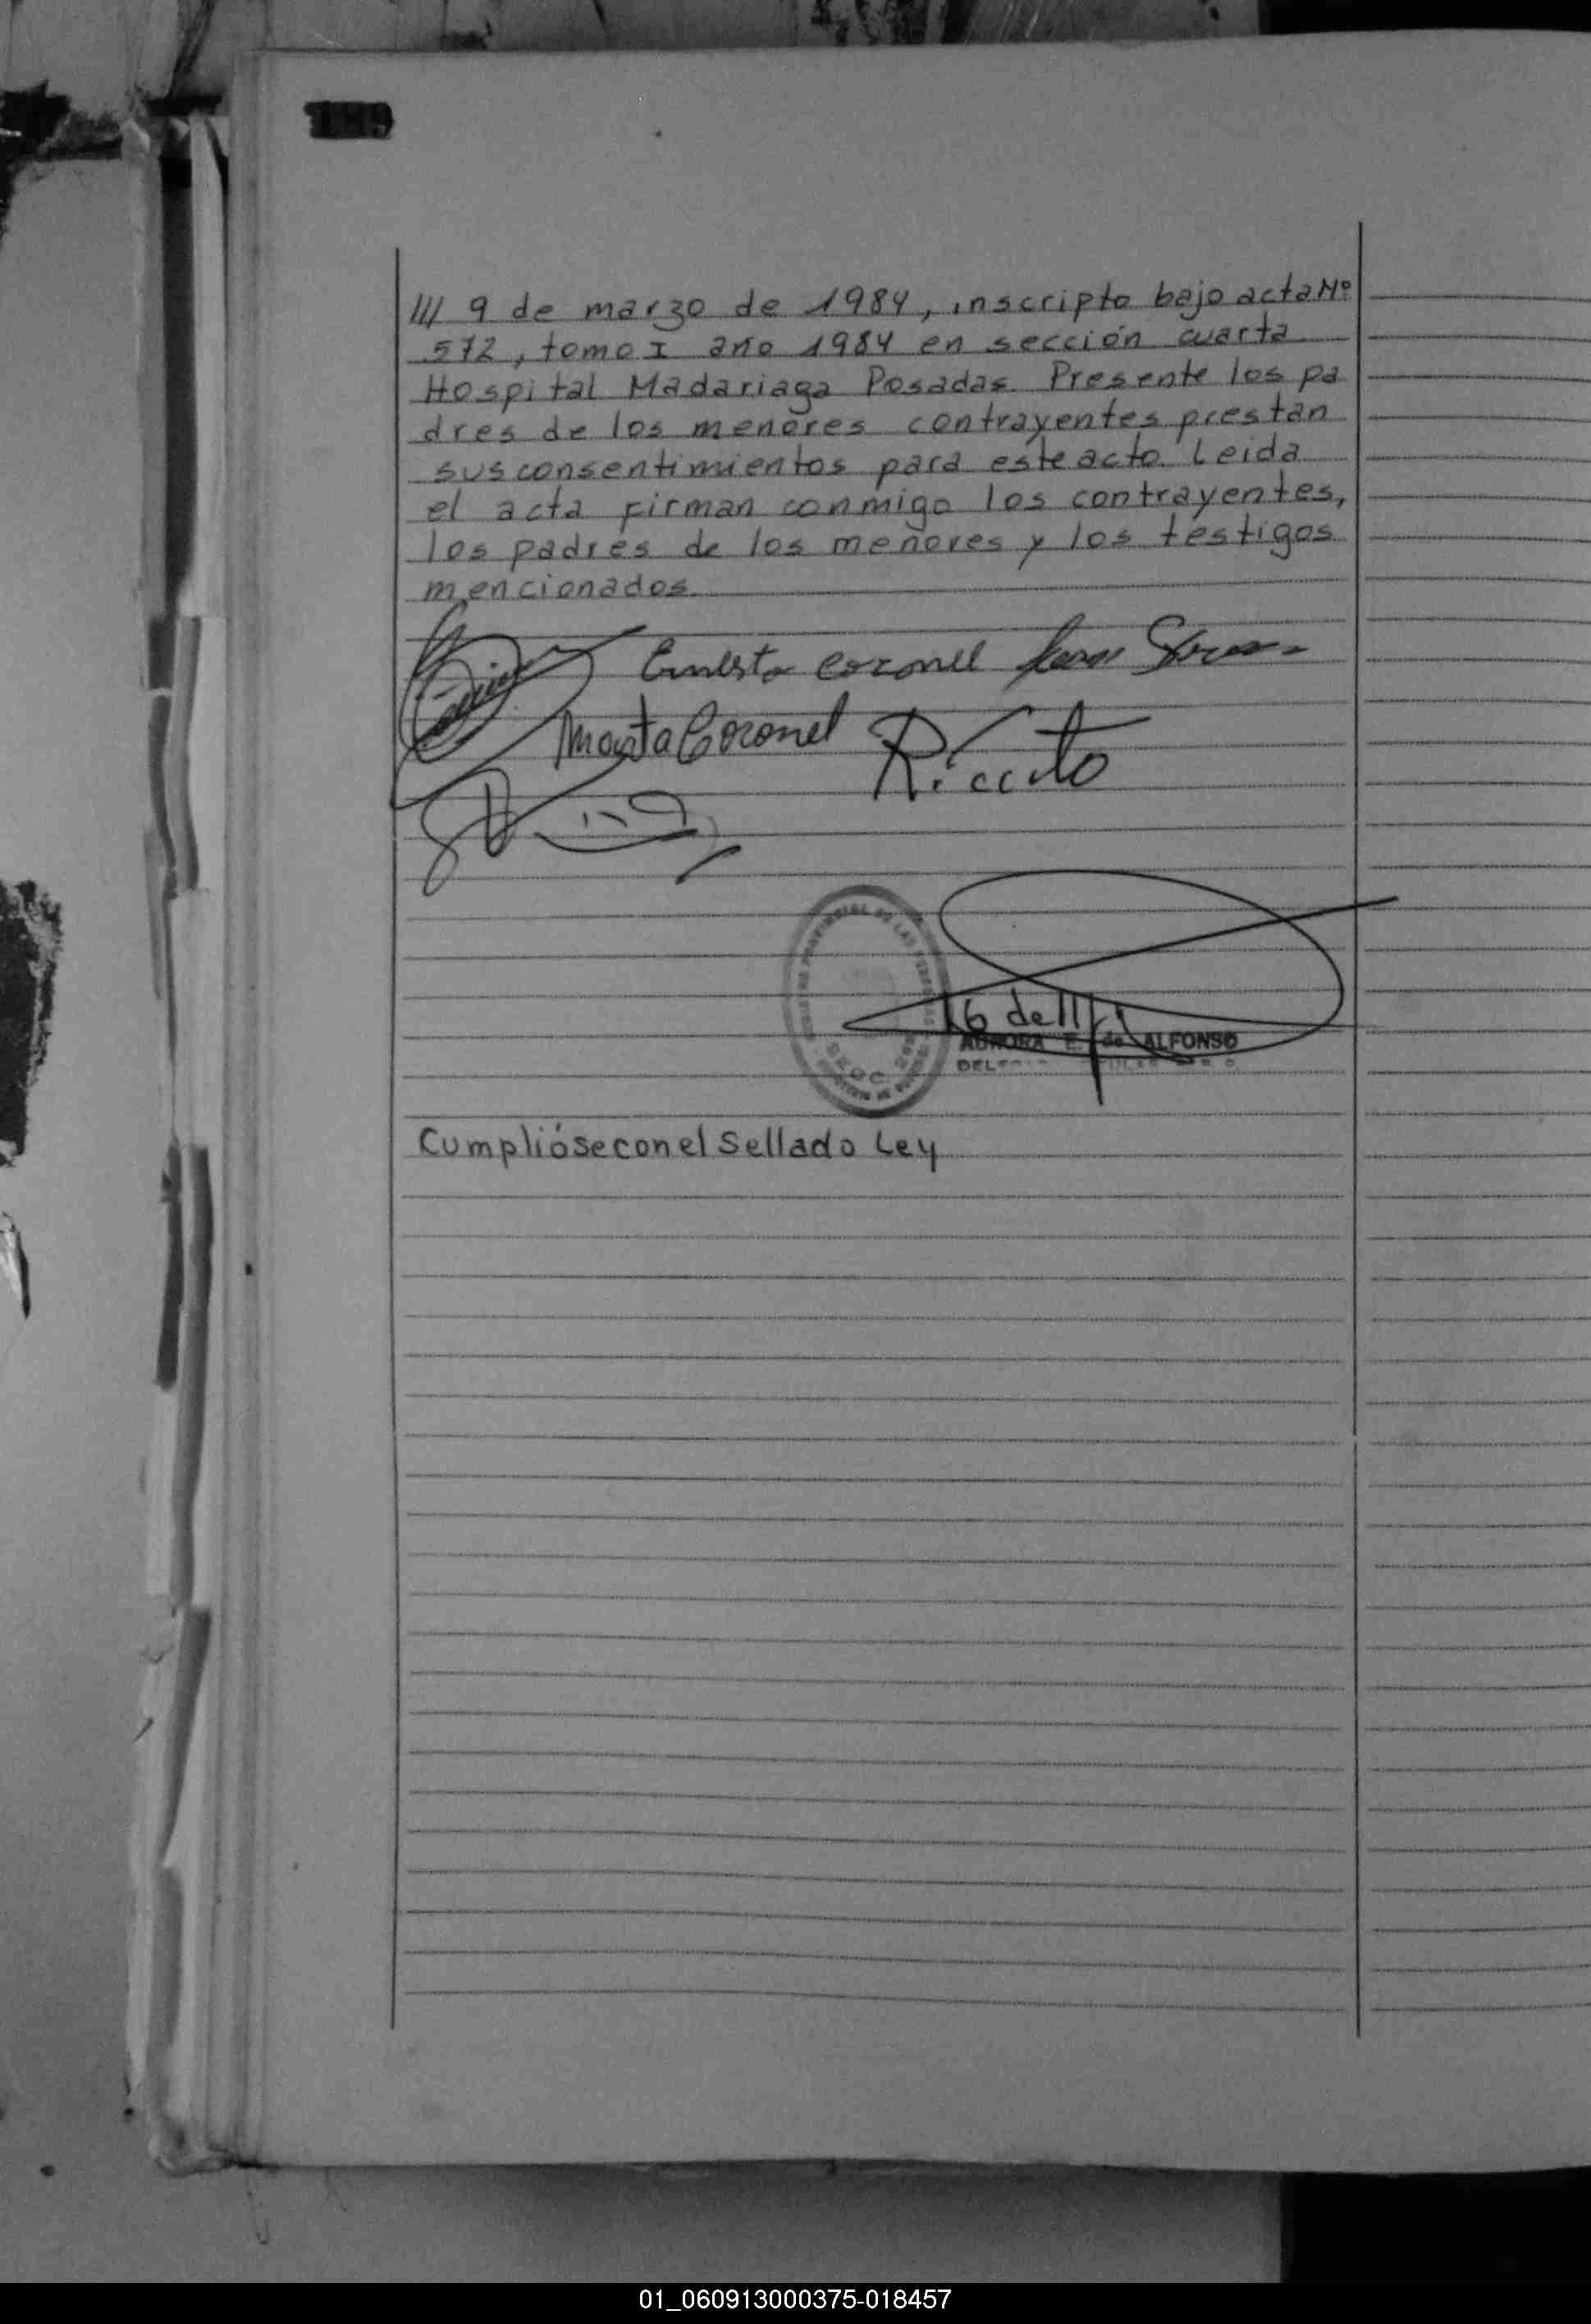 /// 9 de marzo de 1984, inscripto bajo acta Nº
572, tomo I año 1984 en sección cuarta
Hospital Madariaga Posadas. Presente los pa
dres de los menores contrayentes prestan
sus consentimientos para este acto. Leida
el acta firman conmigo los contrayentes,
los padres de los menores y los testigos
mencionados.
Ernesto Coronel
Marta Coronel
AURORA E. de ALFONSO
Cumplióse con el Sellado Ley
01_060913000375-018457